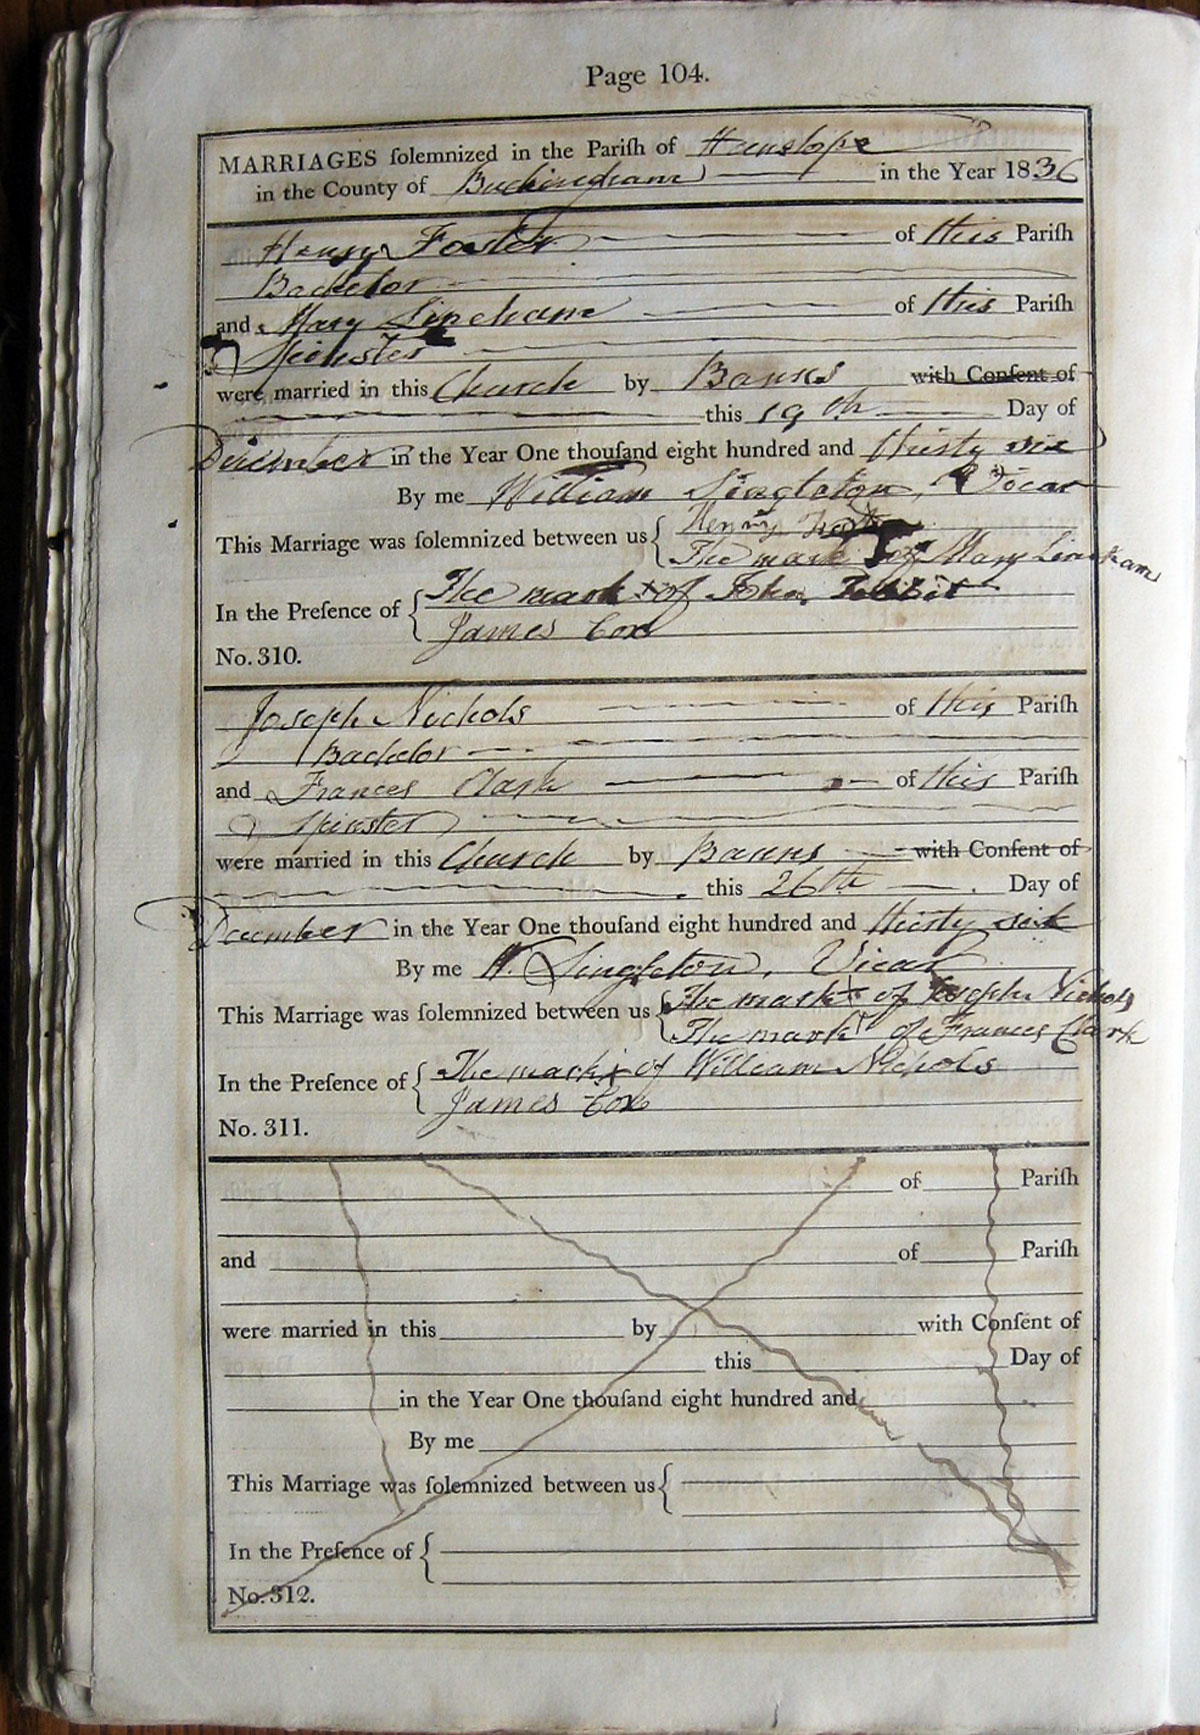 Page 104.
MARRIAGES ſolemnized in the Pariſh of Hanslope
in the County of Buckingham in the Year 1836
Henry Foster of this Pariſh
Bachelor
and Mary Lineham of this Pariſh
Spinster
were married in this Church by Banns with Conſent of
this 19th Day of
December in the Year One thouſand eight hundred and thirty six
By me William Singleton, Vicar
This Marriage was ſolemnized between us { Henry
The mark of Mary Lineham
In the Preſence of { The mark x of John Tebbit
James Cox
No. 310.
Joseph Nichols of this Pariſh
Bachelor
and Frances Clark of this Pariſh
Spinster
were married in this Church by Banns with Conſent of
this 26th Day of
December in the Year One thouſand eight hundred and thirty six
By me W. Singleton, Vicar
This Marriage was ſolemnized between us { The mark + of Joseph Nichols
The mark + of Frances Clark
In the Preſence of { The mark + of William Nichols
James Cox
No. 311.
of Pariſh
and of Pariſh
were married in this by with Conſent of
this Day of
in the Year One thouſand eight hundred and
By me
This Marriage was ſolemnized between us {
In the Preſence of {
No. 312.